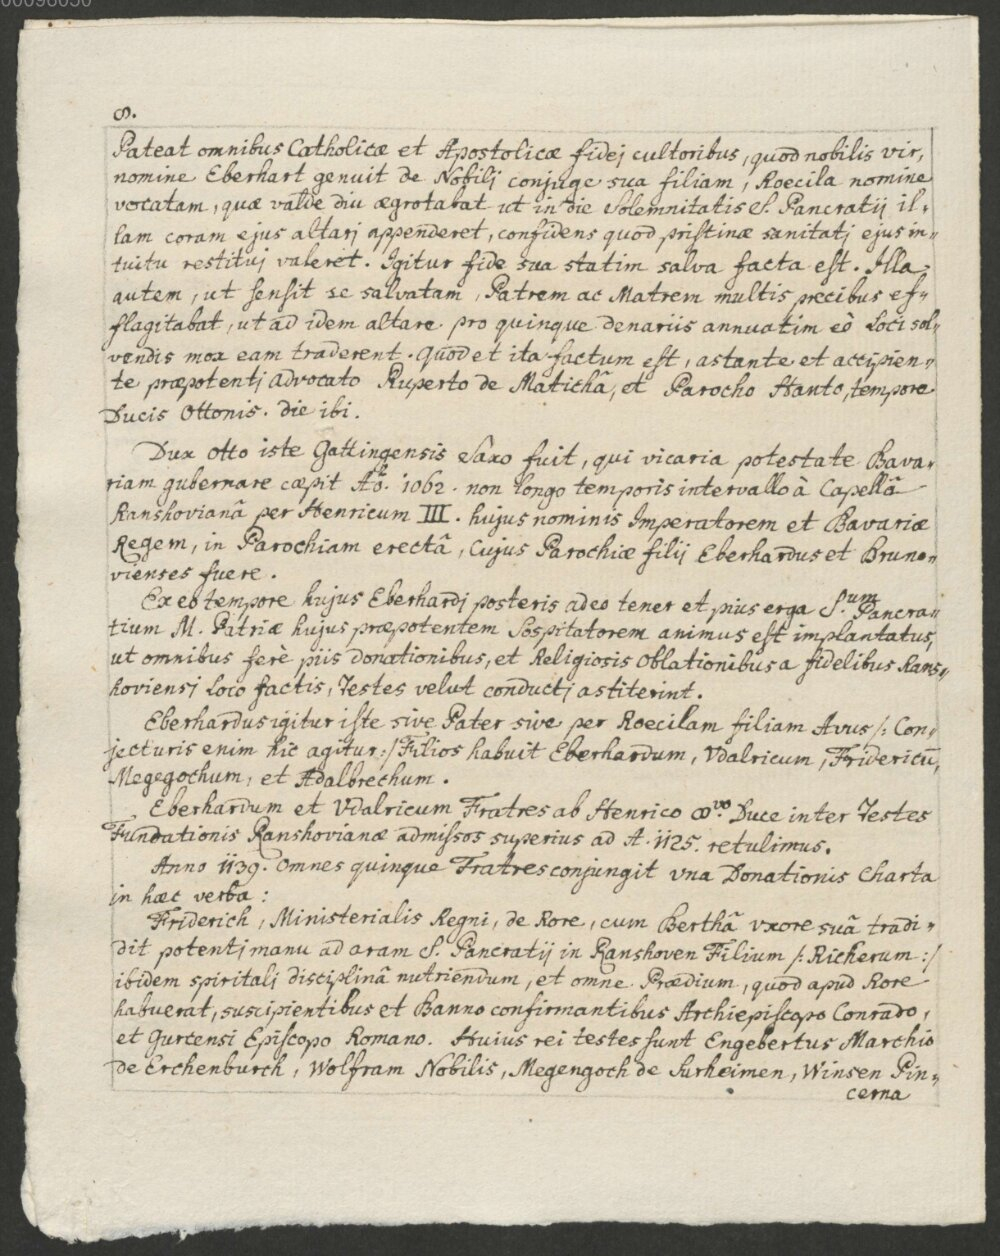 00096050
8.
Pateat omnibus Catholicæ et Apostolicæ fidej cultoribus, quod nobilis vir,
nomine Eberhart genuit de Nobilj conjuge sua filiam, Roecila nomine
vocatam, quæ valde diu ægrotabat ut in die Solemnitatis S. Pancratij il„
lam coram ejus altarj appenderet, confidens quod pristinæ sanitatj ejus in„
tuitu restituj valeret. Igitur fide sua statim salva facta est. Illa„
autem, ut sensit se salvatam, Patrem ac Matrem multis precibus ef„
flagitabat, ut ad idem altare pro quinque denariis annuatim eò Loci sol„
vendis mox eam traderent. Quod et ita factum est, astante et accipien„
te præpotentj advocato Ruperto de Matichâ, et Parocho Hanto, tempore
Ducis Ottonis. die ibi.
Dux Otto iste Gattingensis Saxo fuit, qui vicaria potestate Bava„
riam gubernare cæpit Aõ. 1062. non longo temporis intervallo à Capellâ
Ranshovianâ per Henricum III. hujus nominis Imperatorem et Bavariæ
Regem, in Parochiam erectâ, Cujus Parochiæ filij Eberhardus et Bruno„
vienses fuere.
Ex eo tempore hujus Eberhardj posteris adeo tener et pius erga S.um Pancra„
tium M. Patriæ hujus præpotentem Sospitatorem animus est implantatus,
ut omnibus ferè piis donationibus, et Religiosis oblationibus a fidelibus Rans„
hoviensj Loco factis, Testes velut conductj astiterint.
Eberhardus igitur iste sive Pater sive per Roecilam filiam Avus /: Con„
jecturis enim hic agitur :/ Filios habuit Eberhardum, Vdalricum, Fridericũ,
Megegochum, et Adalbrechum.
Eberhardum et Vdalricum Fratres ab Henrico 8vo. Duce inter Testes
Fundationis Ranshovianæ admissos superius ad A. 1125. retulimus.
Anno 1139. Omnes quinque Fratres conjungit vna Donationis Charta
in hæc verba:
Friderich, Ministerialis Regni, de Rore, cum Berthâ vxore suâ tradi„
dit potentj manu ad aram S. Pancratij in Ranshoven Filium /: Richerum :/
ibidem spiritalj disciplinâ nutriendum, et omne Prædium, quod apud Rore
habuerat, suscipientibus et Banno confirmantibus Archiepiscopo Conrado,
et Gurcensi Episcopo Romano. Huius rei testes sunt Engebertus Marchio
de Erchenburch, Wolfram Nobilis, Megengoch de Surheimen, Winsen Pin„
cerna